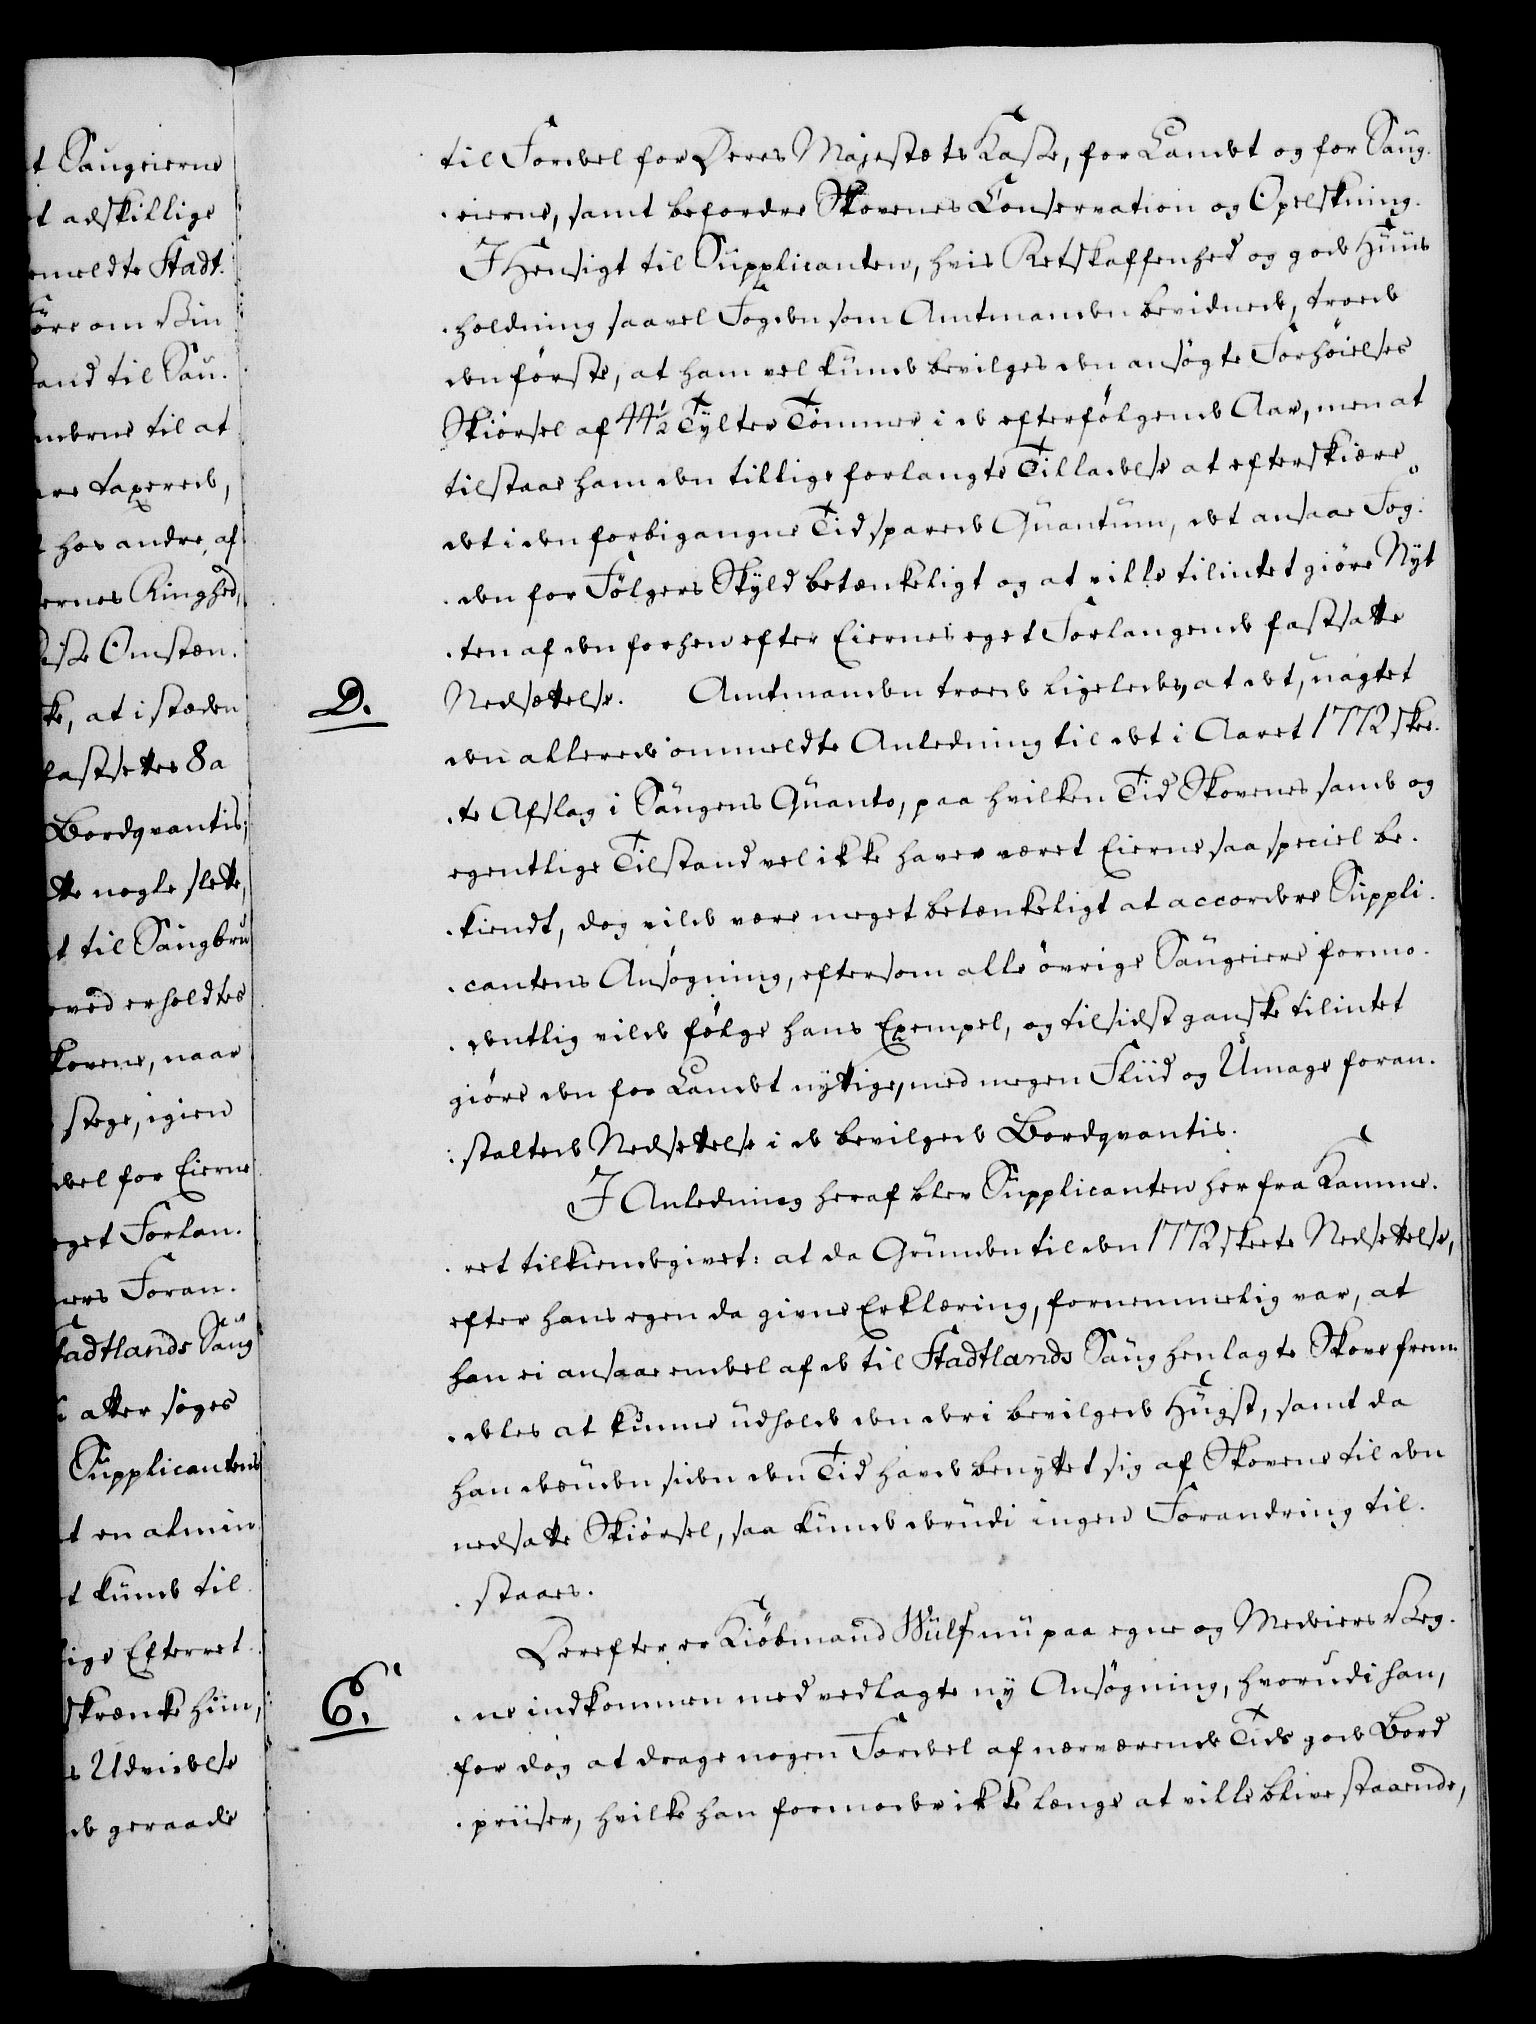 t Saugeierne
t adskillige
emeldte Stadt.
Kiøre om Bin
and til Sau.
nderne til at
re taxerede,
hos andre, af
ernes Ringhed,
isse Omstæn.
ke, at i stæden
fastsettes 8a
Bordqvantis,
tte nogle slette,
t til Saugbru
ved erholdtes
kovene, naar
stege, igien
del for Eierne
get Forlan.
ers Foran.
tadtlands Saug
atter søges
Supplicantens
t en almin
t kunde til
ige Efterret.
skrænke hiin,
s Udvidelse
de geraade
til Fordeel for Deres Majestæts Kasse, for Landet og for Saug.
.eierne, samt befordre Skovenes Conservation og Opelskning.
I Hensigt til Supplicanten, hvis Retskaffenhed og gode Huus
.holdning saavel Fogden som Amtmanden bevidnede, troede
den første, at ham vel kunde bevilges den ansøgte Forhøielses
Skiørsel af 44½ Tylter Tømmer i de efterfølgende Aar, men at
tilstaae ham den tillige forlangte Tilladelse at efterskiære
det i den forbigangne Tid sparede Quantum, det ansaae Fog.
.den for Følgers Skyld betænkeligt og at ville tilintet giøre Nyt
.ten af den forhen efter Eiernes eget Forlangende fastsatte
D. Nedsættelse. Amtmanden troede ligeledes, at det, uagtet
den allerede ommeldte Anledning til det i Aaret 1772 skee.
.te Afslag i Saugens Quanto, paa hvilken Tid Skovenes sande og
egentlige Tilstand vel ikke haver været Eierne saa speciel be.
.kiendt, dog vilde være meget betænkeligt at accordere Suppli.
.cantens Ansøgning, eftersom alle øvrige Saugeiere formo.
.dentlig vilde følge hans Exempel, og tilsidst ganske tilintet
giøre den for Landet nyttige, med megen Fliid og Umage foran.
.staltede Nedsettelse i de bevilgede Bordqvantis.
I Anledning heraf blev Supplicanten her fra Kamme.
.ret tilkiendegivet: at da Grunden til den 1772 skeete Nedsettelse,
efter hans egen da givne Erklæring, fornemmelig var, at
han ei ansaae endeel af de til Stadtlands Saug henlagte Skove frem
.deles at kunne udholde den deri bevilgede Hugst, samt da
han desuden siden den Tid havde benyttet sig af Skovene til den
nedsatte Skiørsel, saa kunde derudi ingen Forandring til.
.staaes.
Derefter er Kiøbmand Wulf nu paa egne og Medeieres Veg.
6. .ne indkommen med vedlagte ny Ansøgning, hvorudi han,
for dog at drage nogen Fordeel af nærværende Tids gode Bord
.priiser, hvilke han formoder ikke længe at ville blive staaende,